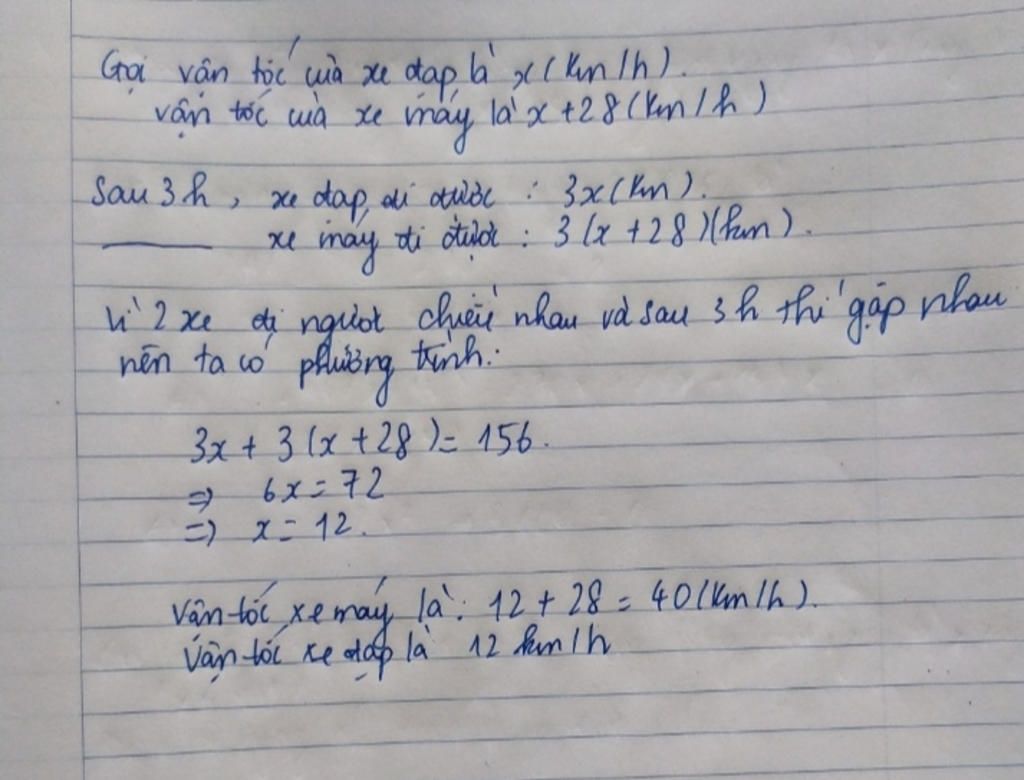 Gọi vận tốc của xe đạp là x (km/h).
vận tốc của xe máy là x + 28 (km/h)
Sau 3h, xe đạp đi được : 3x (km).
——— xe máy đi được : 3 (x + 28) (km).
Vì 2 xe đi ngược chiều nhau và sau 3h thì gặp nhau
nên ta có phương trình:
3x + 3 (x + 28) = 156.
⇒ 6x = 72
⇒ x = 12.
Vận tốc xe máy là: 12 + 28 = 40 (km/h).
Vận tốc xe đạp là 12 km/h